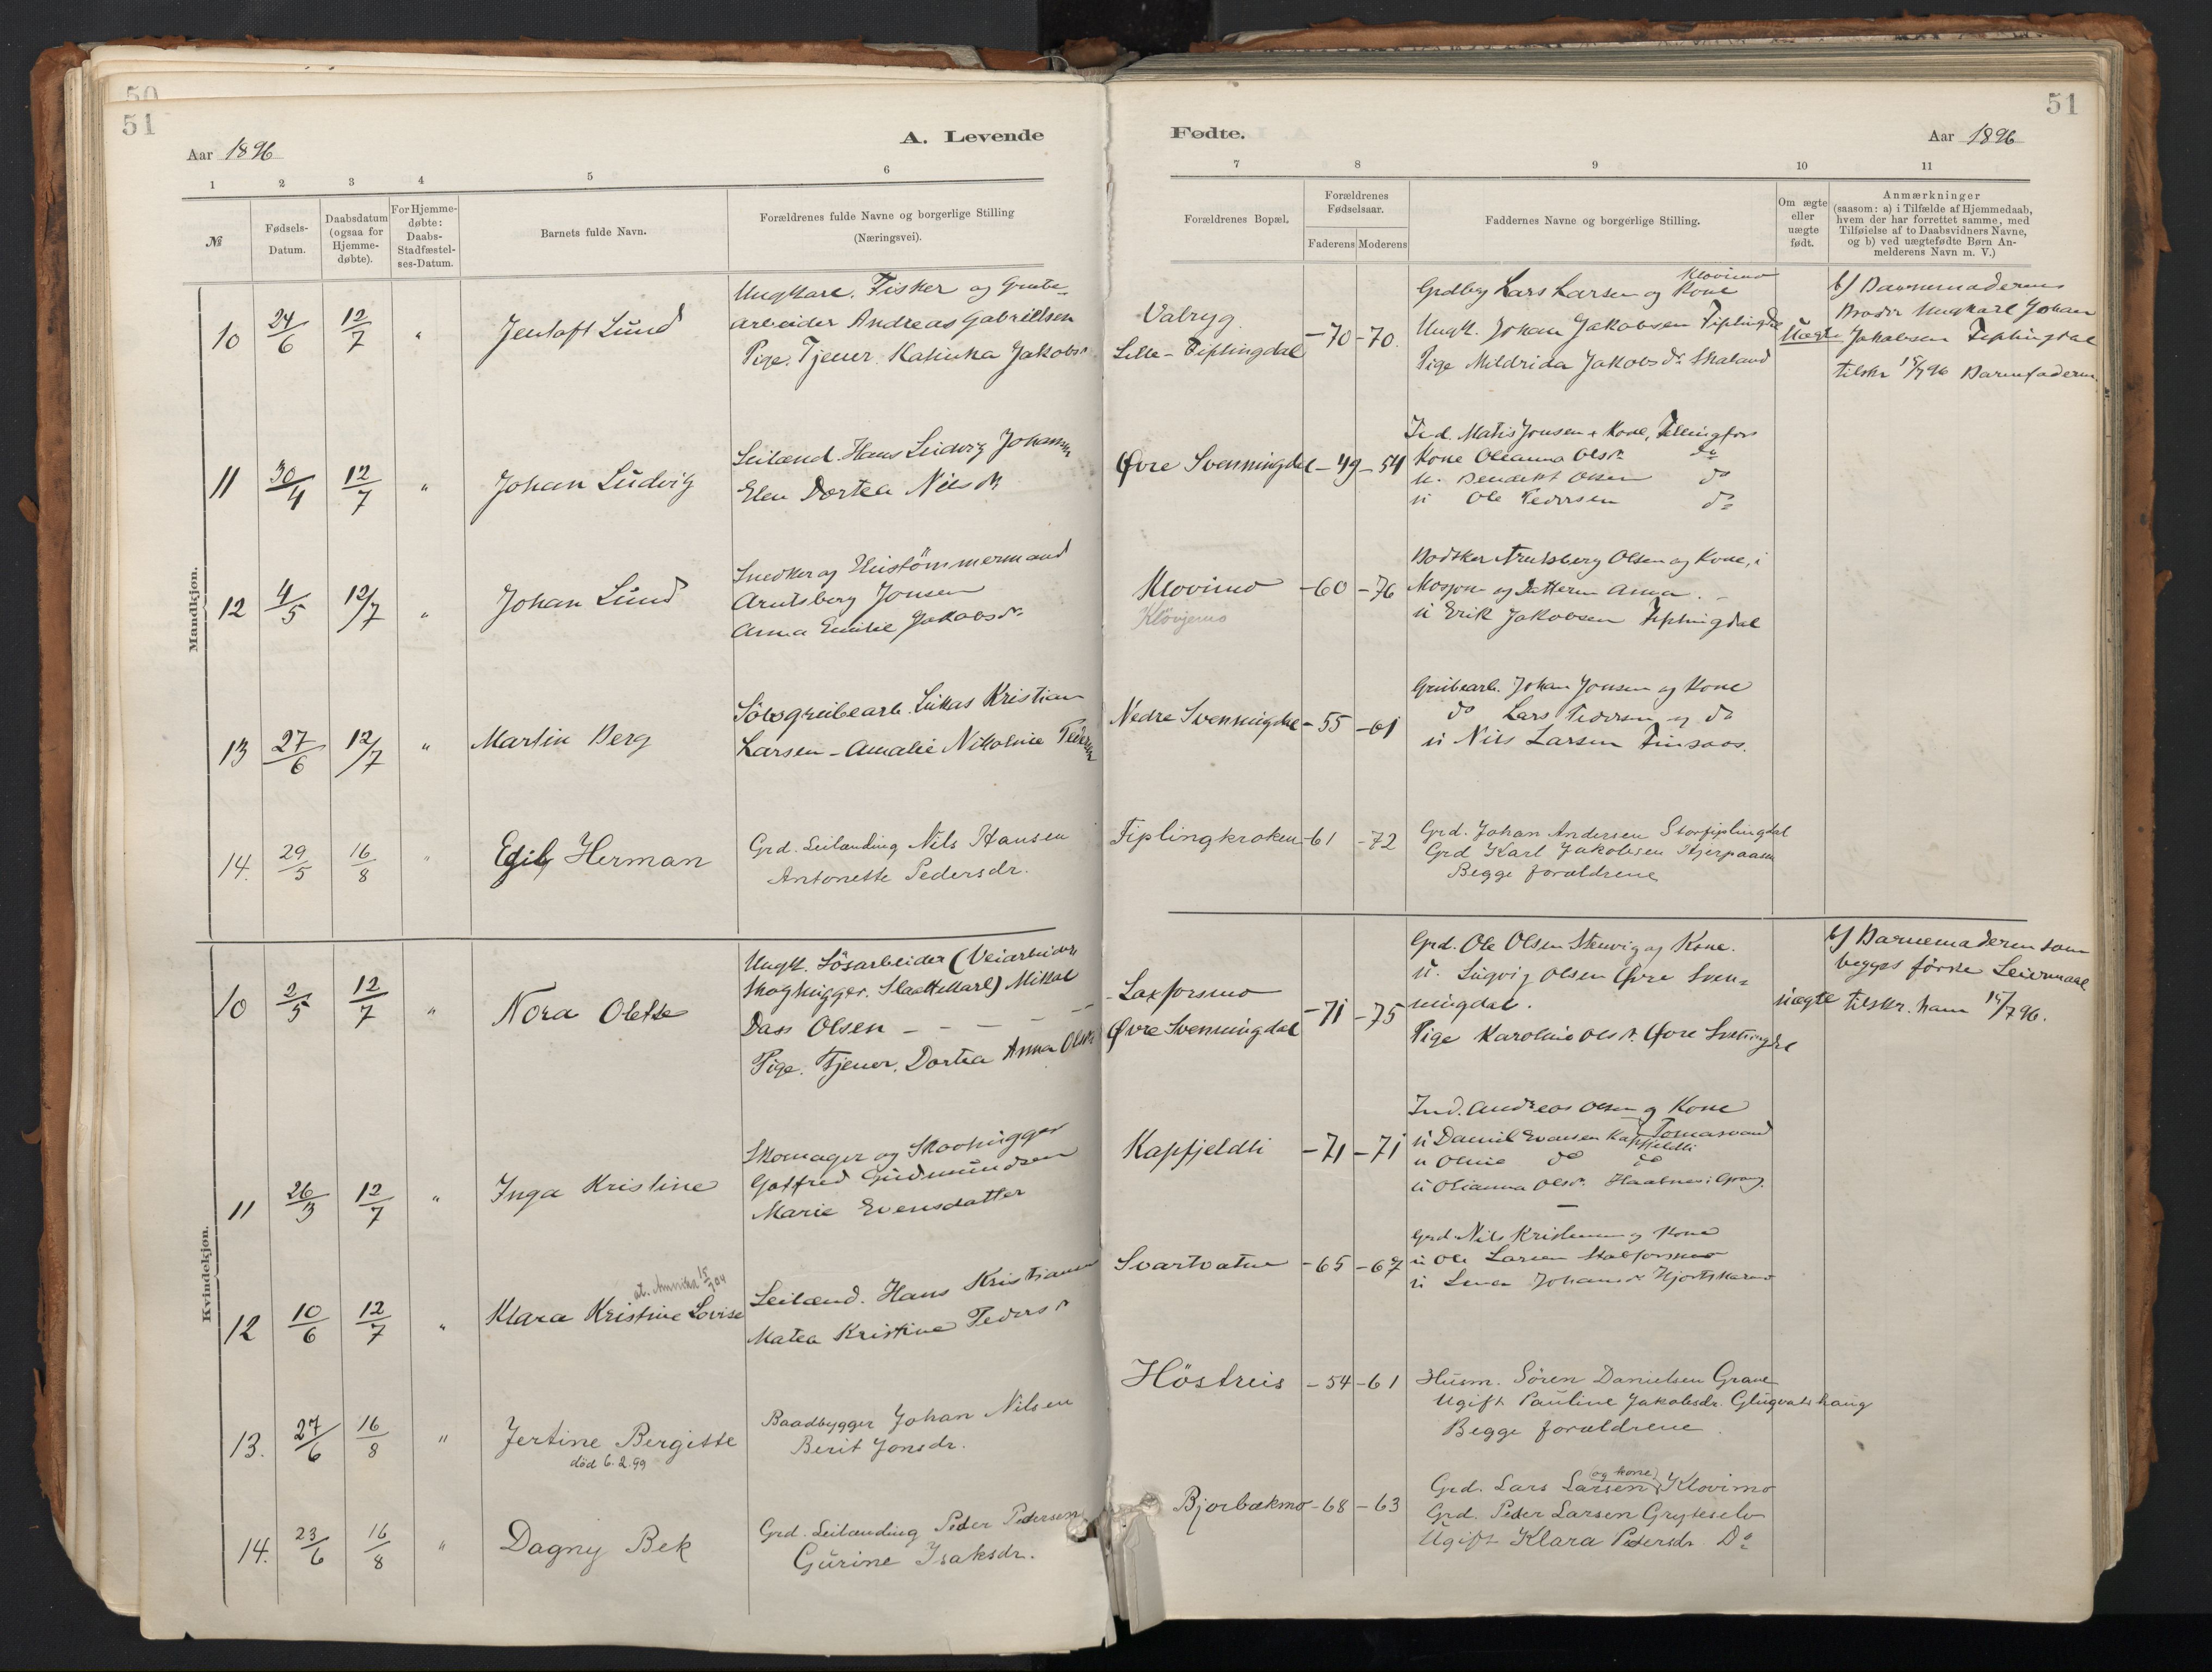 50
51
51
A. Levende
Fødte.
Aar 1896
Aar 1896
1 2 3 4 5 6
7 8 9 10 11
№
Fødsels-Datum.
Daabsdatum (ogsaa for Hjemme-døbte).
For Hjemme-døbte: Daabs-Stadfæstel-ses-Datum.
Barnets fulde Navn.
Forældrenes fulde Navne og borgerlige Stilling
(Næringsvei).
Forældrenes Bopæl.
Forældrenes Fødselsaar.
Faderens Moderens
Faddernes Navne og borgerlige Stilling.
Om ægte eller uægte født.
Anmærkninger
(saasom: a) i Tilfælde af Hjemmedaab,
hvem der har forrettet samme, med
Tilføielse af to Daabsvidners Navne,
og b) ved uægtefødte Børn An-
melderens Navn m. V.)
Mandkjøn.
10 24/6 12/7 " Jentoft Lund
Ungkarl. Fisker og Grube-
arbeider Andreas Gabrielsen
Pige. Tjener. Katinka Jakobsdr
Valryg
Lille-Fiplingdal
-70 -70.
Klovimo
Grdbrg Lars Larsen og Kone
Ungk. Johan Jakobsen Fiplingdal
Pige Mildrida Jakobsdr Skaland
Uægte
b) Barnemoderens
Broder Ungkarl Johan
Jakobsen Fiplingdal
tilskr 15/7 96 Barnefaderen.
11 30/4 12/7 " Johan Ludvig
Leilænd. Hans Ludvig Johannsen
Elen Dortea Nilsdr
Øvre Svenningdal -49 -54
Ind. Matis Jonsen & Kone, Fellingfors
Kone Oleanna Olsdr do
u. Benedikt Olsen do
u Ole Pedersen do
12 4/5 12/7 " Johan Lund
Snedker og Hustömmermand
Arntsberg Jonsen
Anna Emilie Jakobsdr
Klovimo
Klövjemo
-60 -76
Bødker Arntsberg Olsen og Kone, i
Mosjøen og Datteren Anna.
u Erik Jakobsen Fiplingdal
13 27/6 12/7 " Martin Berg
Sölvgrubearb. Lukas Kristian
Larsen - Amalie Nikoline Pedersen
Nedre Svenningdal -55 -61
Grubearb. Johan Jonsen og Kone
do Lars Pedersen og do
u Nils Larsen Finsaas.
14. 29/5 16/8 " Egil Herman
Grd. Leilænding Nils Hansen
Antonette Pedersdr.
Fiplingkroken -61 -72
Grd. Johan Andersen Storfiplingdal
Grd Karl Jakobsen Hjerpaasen
Begge forældrene
Kvindekjøn.
10 2/5 12/7 " Nora Olette
Ungk. Lösarbeider (Veiarbeider
Skoghugger. Slaattekarl) Mikal
Dass Olsen - - - -
Pige. Tjener. Dortea Anna Olsdr
Laxforsmo
Øvre Svenningdal
-71 -75
Grd. Ole Olsen Stenvig og Kone.
u. Ludvig Olsen Øvre Sven-
ningdal.
Pige Karoline Olsdr. Øvre Svenningdal
uægte
b) Barnemoderen som
begges første Leiermaal
tilskr. ham 15/7 96.
11 26/3 12/7 " Inga Kristine
Skomager og Skovhugger
Gotfred Gudmundsen
Marie Evensdatter
Kapfjeldli -71 -71
Ind. Andreas Olsen og Kone
Tomasvand
u Daniel Evensen Kapfjeldli
u Oline do do
u Olianna Olsdr. Haabnes i Grong.
at. Annika 15/7 04
12 10/6 12/7 " Klara Kristine Lovise
Leilænd. Hans Kristiansen
Matea Kristine Pedersdr
Svartvatne -65 -67
Grd. Nils Kristensen og Kone
u Ole Larsen Stalforsmo
u Johansdr Hjortskarmo
13. 27/6 16/8 " Jertine Bergitte
død 6.2.99
Baadbygger Johan Nilsen
Berit Jonsdr.
Höstreis -54 -61
Husm. Sören Danielsen Grane
Ugift Pauline Jakobsdr. Glugvatshaug
Begge forældrene.
14. 23/6 16/8 " Dagny Bek
Grd. Leilænding Peder Pedersen
Gurine Isaksdr.
Bjorbækmo -68 -63
Grd. Lars Larsen (og kone) Klovimo
Grd. Peder Larsen Grytselv
Ugift Klara Pedersdr Do